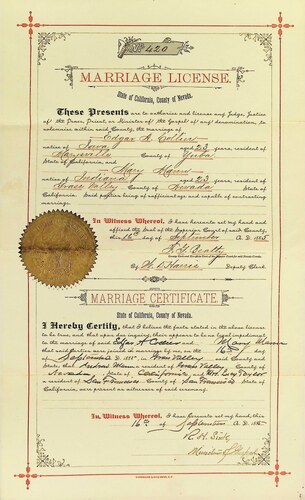 No 420
MARRIAGE LICENSE.
State of California, County of Nevada.
These Presents are to authorize and license any Judge, Justice
of the Peace, Priest, or Minister of the Gospel of any denomination, to
solemnize within said County, the marriage of
Edgar A. Collier
native of Iowa, aged 23 years, resident of
Marysville County of Yuba
State of California, and
Mary Mann
native of Indiana aged 23 years, resident of
Grass Valley County of Nevada State of
California. Said parties being of sufficient age and capable of contracting
marriage.
In Witness Whereof, I have hereunto set my hand and
affixed the Seal of the Superior Court of said County,
this 16th day of September A. D. 1885
Deputy Clerk
MARRIAGE CERTIFICATE.
State of California, County of Nevada.
I Hereby Certify, that I believe the facts stated in the above license
to be true, and that upon due inquiry, there appears to be no legal impediment
to the marriage of said Edgar A. Collier and Mary Mann
that said parties were joined in marriage by me, on the 16th day of
September 1885, in Grass Valley, said County and State;
that Mann a resident of Grass Valley County of
Nevada, State of California, and Mrs. Lucy Taylor
a resident of San Francisco County of San Francisco State of
California, were present as witnesses of said ceremony.
In Witness Whereof, I have hereunto set my hand, this
16th of September A. D. 1885
R. H. Sink